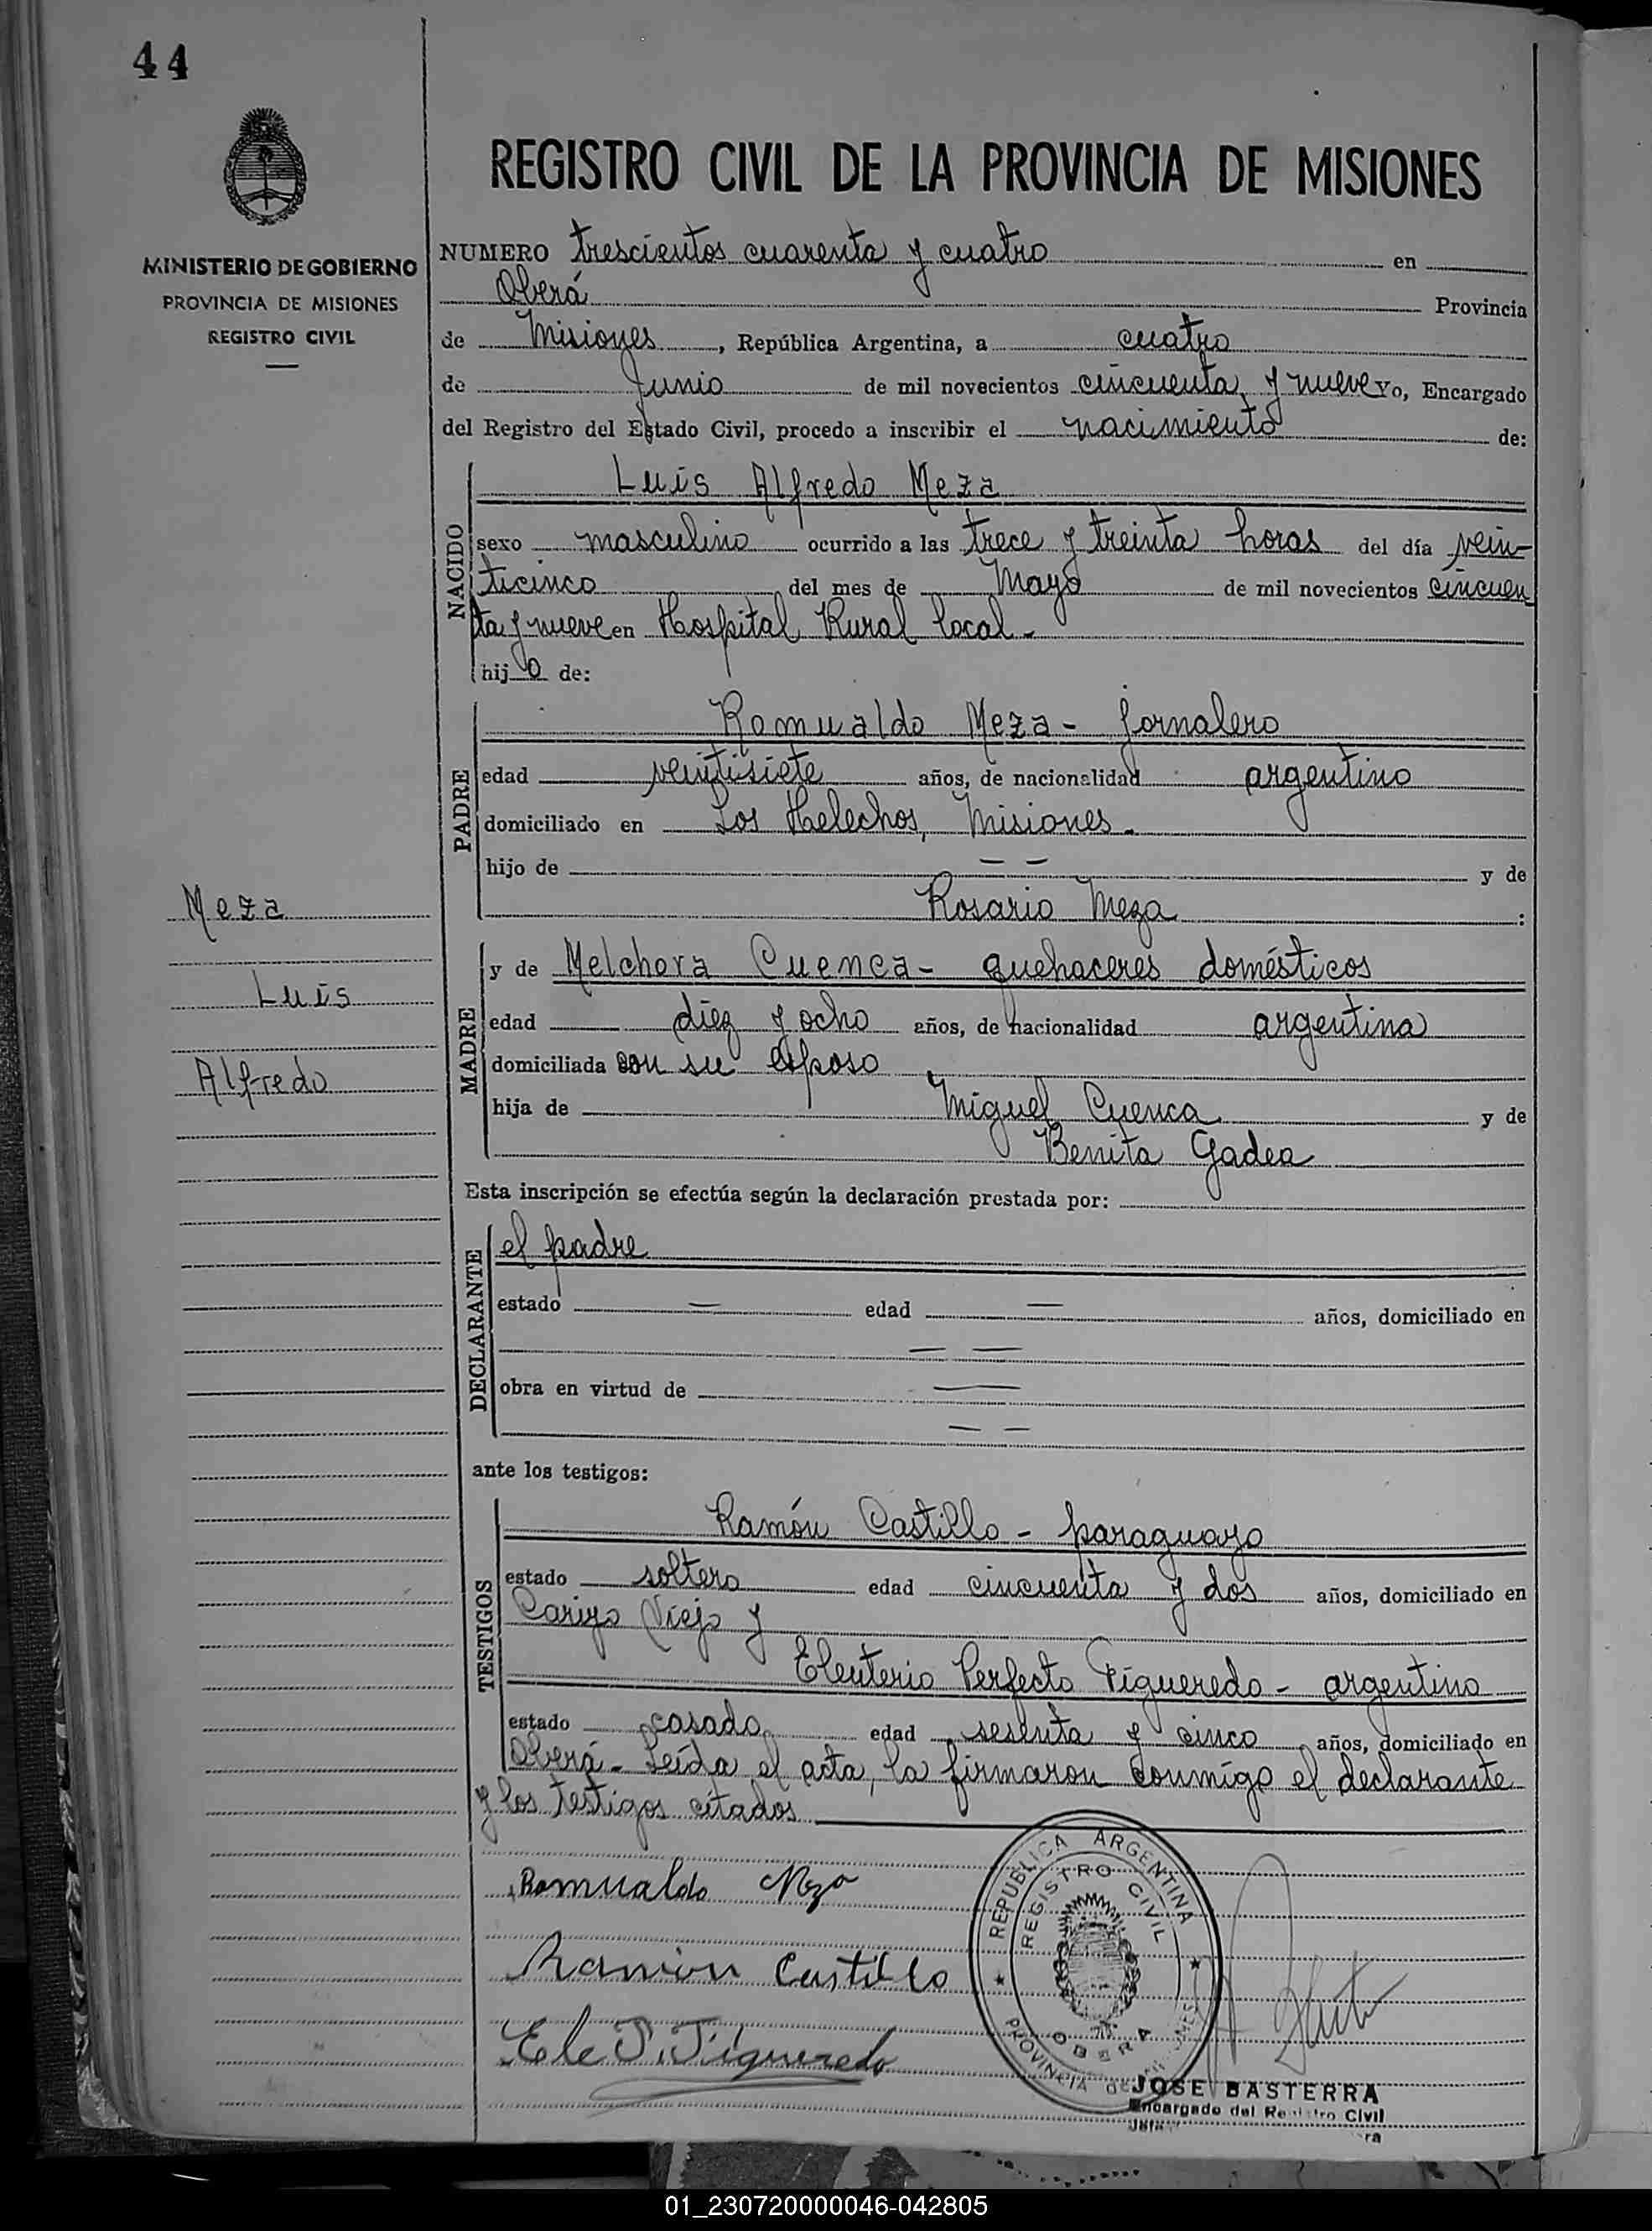 44
REGISTRO CIVIL DE LA PROVINCIA DE MISIONES
MINISTERIO DE GOBIERNO
PROVINCIA DE MISIONES
REGISTRO CIVIL
NUMERO trescientos cuarenta y cuatro en
Oberá Provincia
de Misiones, República Argentina, a cuatro
de Junio de mil novecientos cincuenta y nueve yo, Encargado
del Registro del Estado Civil, procedo a inscribir el nacimiento de:
NACIDO
Luis Alfredo Meza
sexo masculino ocurrido a las trece y treinta horas del día vein-
ticinco del mes de Mayo de mil novecientos cincuen
ta y nueve en Hospital Rural local.-
hijo de:
PADRE
Romualdo Meza - jornalero
edad veintisiete años, de nacionalidad argentino
domiciliado en Los Helechos, Misiones.-
hijo de — — y de
Rosario Meza :
Meza
Luis
Alfredo
MADRE
y de Melchora Cuenca - quehaceres domésticos
edad diez y ocho años, de nacionalidad argentina
domiciliada con su esposo
hija de Miguel Cuenca y de
Benita Gadea
Esta inscripción se efectúa según la declaración prestada por:
DECLARANTE
el padre
estado — edad — años, domiciliado en
— —
obra en virtud de —
— —
ante los testigos:
TESTIGOS
Ramón Castillo - paraguayo
estado soltero edad cincuenta y dos años, domiciliado en
Viejo y
Eleuterio Perfecto Figueredo - argentino
estado casado edad sesenta y cinco años, domiciliado en
Oberá - Leída el acta, la firmaron conmigo el declarante
y los testigos citados
Romualdo Meza
Ramon Castillo
Ele P. Figueredo
REPUBLICA ARGENTINA
REGISTRO CIVIL
OBERA
PROVINCIA de MISIONES
JOSE BASTERRA
Encargado del Registro Civil
01_230720000046-042805